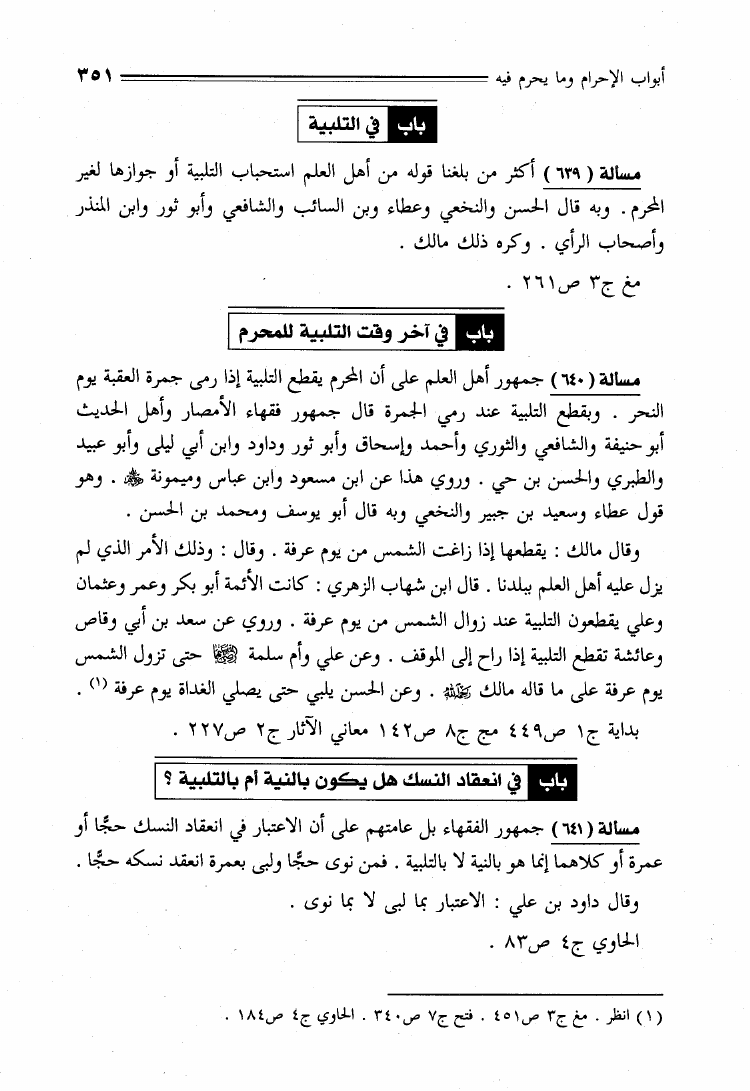 أبواب الإحرام وما يحرم فيه ٣٥١
باب في التلبية
مسألة ( ٦٣٩ ) أكثر من بلغنا قوله من أهل العلم استحباب التلبية أو جوازها لغير
المحرم . وبه قال الحسن والنخعي وعطاء وبن السائب والشافعي وأبو ثور وابن المنذر
وأصحاب الرأي . وكره ذلك مالك .
مغ ج٣ ص٢٦١ .
باب في آخر وقت التلبية للمحرم
مسألة ( ٦٤٠ ) جمهور أهل العلم على أن المحرم يقطع التلبية إذا رمى جمرة العقبة يوم
النحر . وبقطع التلبية عند رمي الجمرة قال جمهور فقهاء الأمصار وأهل الحديث
أبو حنيفة والشافعي والثوري وأحمد وإسحاق وأبو ثور وداود وابن أبي ليلى وأبو عبيد
والطبري والحسن بن حي . وروي هذا عن ابن مسعود وابن عباس وميمونة ﷺ . وهو
قول عطاء وسعيد بن جبير والنخعي وبه قال أبو يوسف ومحمد بن الحسن .
وقال مالك : يقطعها إذا زاغت الشمس من يوم عرفة . وقال : وذلك الأمر الذي لم
يزل عليه أهل العلم ببلدنا . قال ابن شهاب الزهري : كانت الأئمة أبو بكر وعمر وعثمان
وعلي يقطعون التلبية عند زوال الشمس من يوم عرفة . وروي عن سعد بن أبي وقاص
وعائشة تقطع التلبية إذا راح إلى الموقف . وعن علي وأم سلمة حتى تزول الشمس
يوم عرفة على ما قاله مالك . وعن الحسن يلبي حتى يصلي الغداة يوم عرفة (١) .
بداية ج١ ص٤٤٩ مج ج٨ ص١٤٢ معاني الآثار ج٢ ص٢٢٧ .
باب في انعقاد النسك هل يكون بالنية أم بالتلبية ؟
مسألة ( ٦٤١ ) جمهور الفقهاء بل عامتهم على أن الاعتبار في انعقاد النسك حجًّا أو
عمرة أو كلاهما إنما هو بالنية لا بالتلبية . فمن نوى حجًّا ولبى بعمرة انعقد نسكه حجًّا .
وقال داود بن علي : الاعتبار بما لبى لا بما نوى .
الحاوي ج٤ ص٨٣ .
(١) انظر . مغ ج٣ ص٤٥١ . فتح ج٧ ص٣٤٠ . الحاوي ج٤ ص١٨٤ .